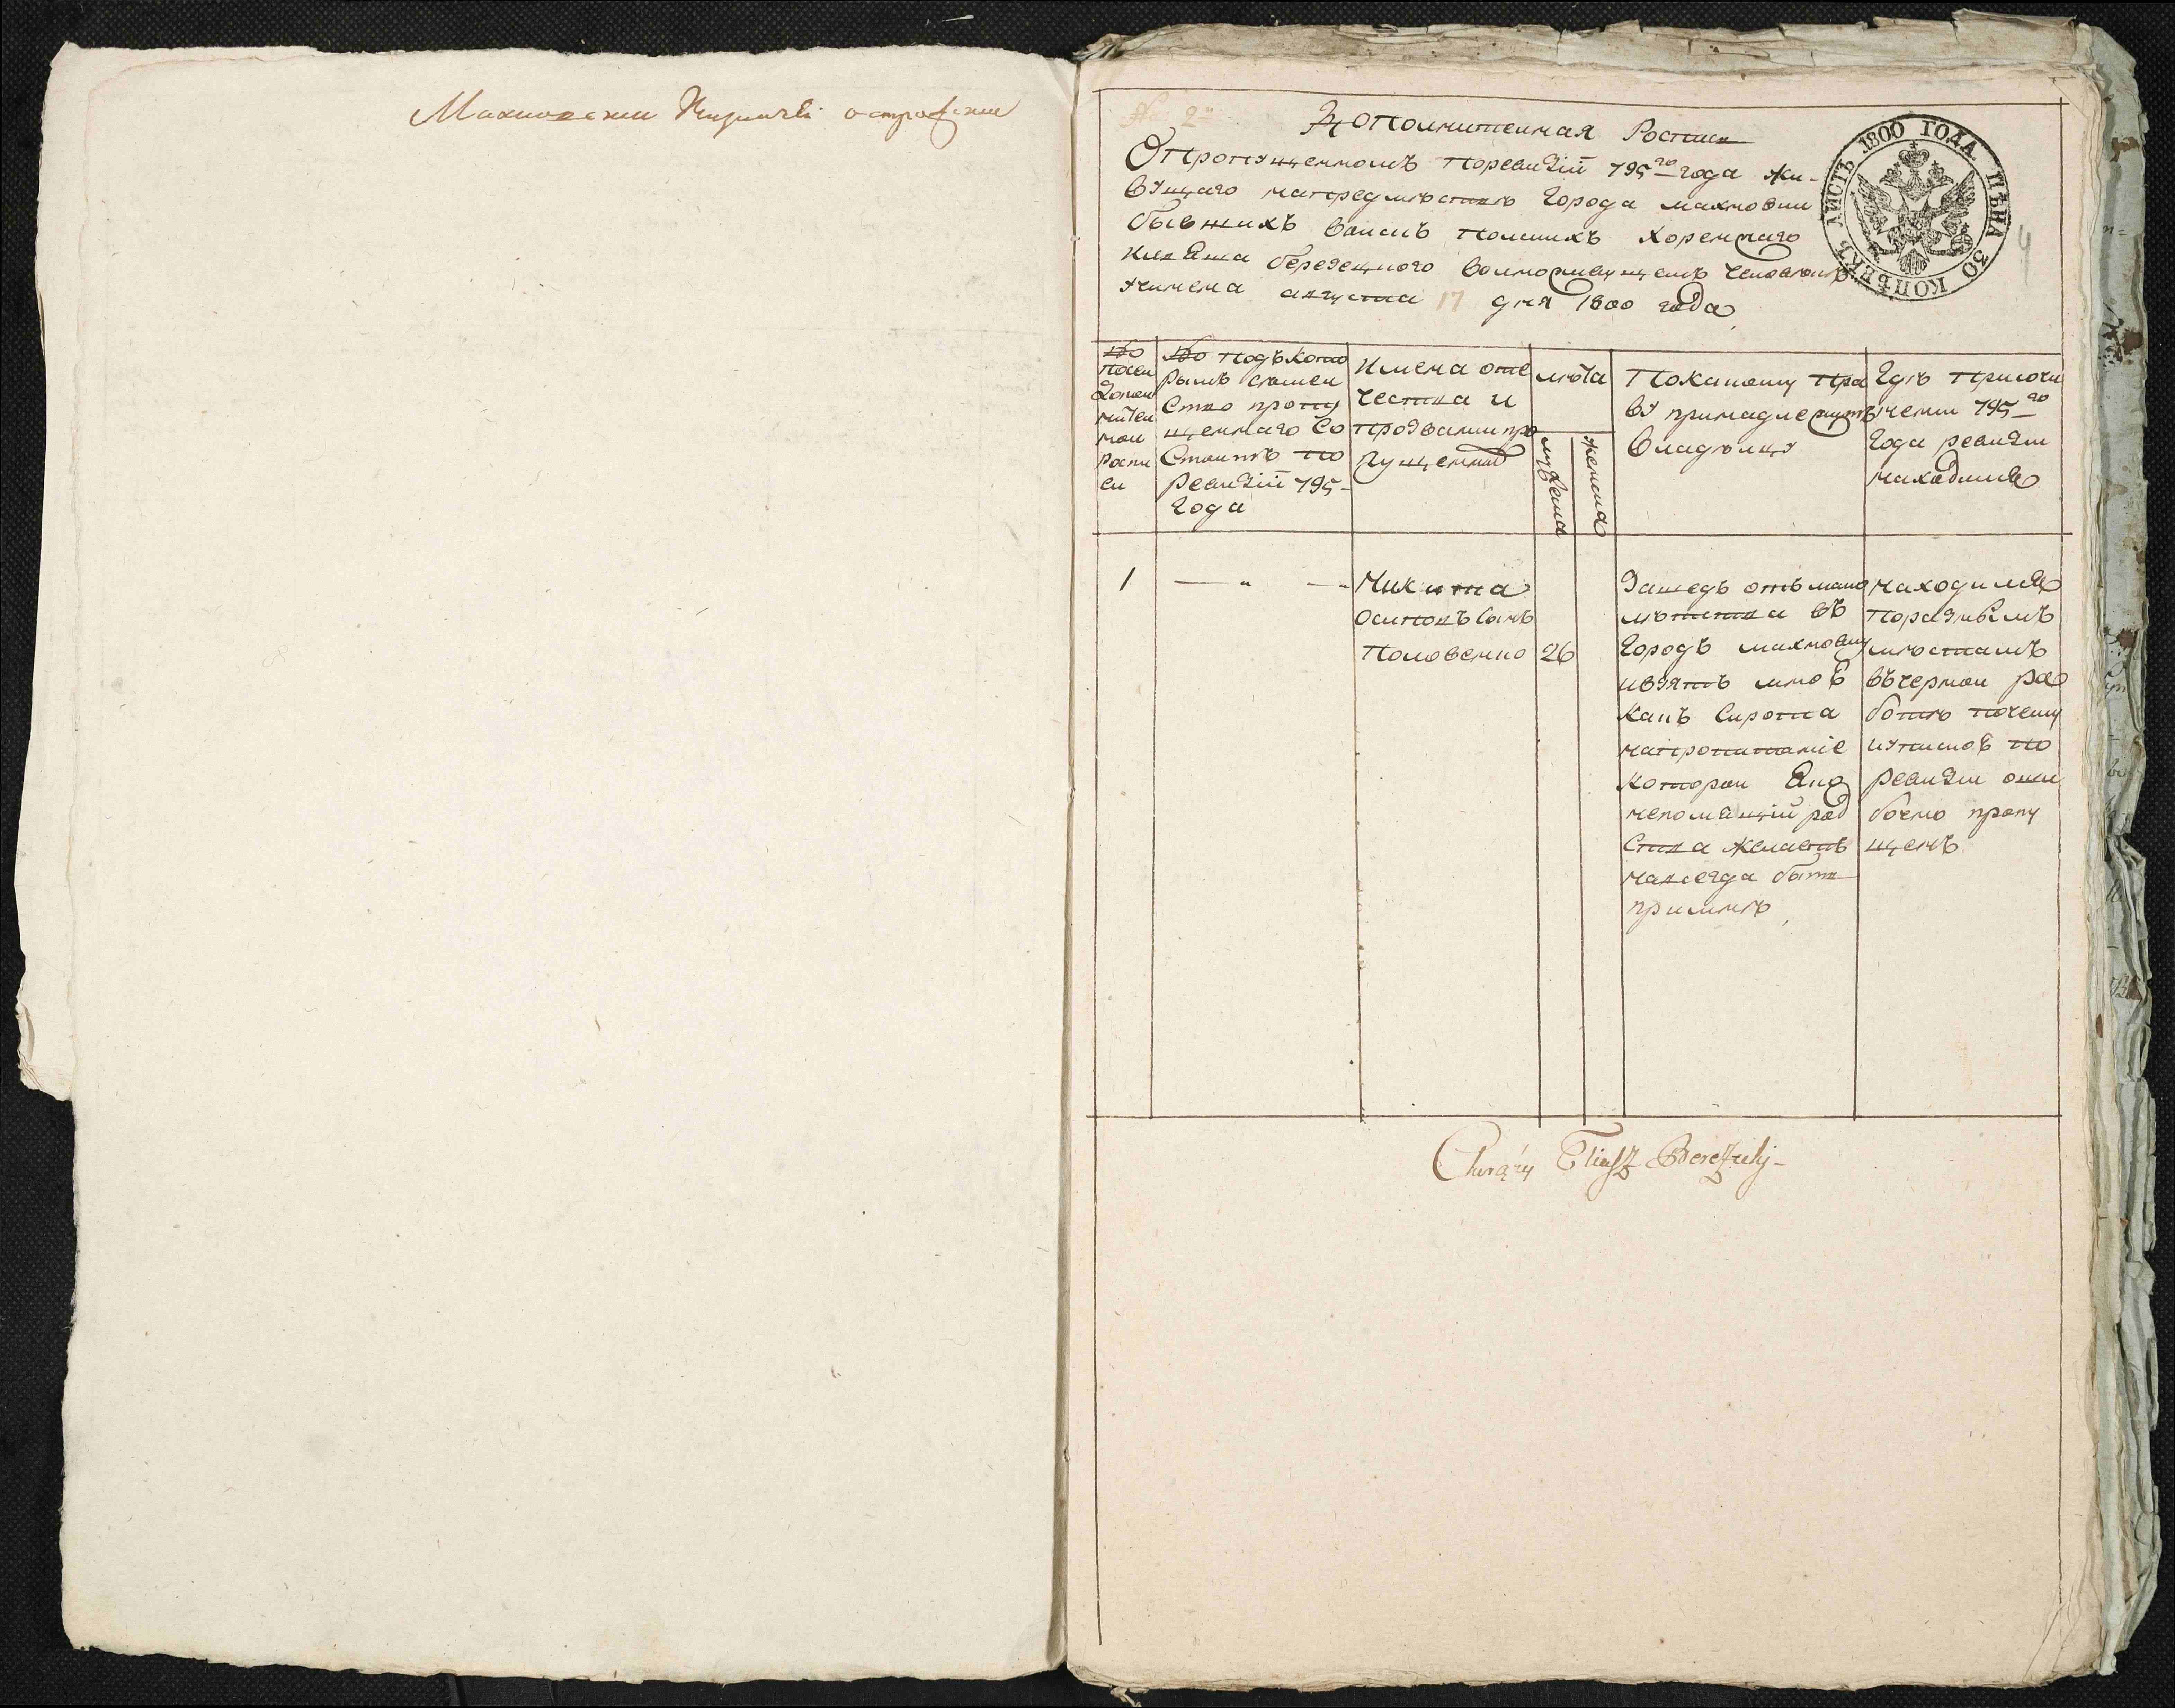 Махновскии
№ 2й
Дополнительная Роспись
О пропущенномъ поревизiи 795го года жи-
вущаго напредмѣстiѣ города махновки
бывшихъ воискъ полскихъ хоренжаго
Илѣяша березецкого волноживущемъ человѣкѣ
учинена августа 17 дня 1800 года
ЛИСТЪ 1800 ГОДА ЦѢНА 30 КОПѢЕКЪ
4
№о
посеи
Дополн
ителн
ной
роспи
си
№о подъкото
рымъ семеи
ство пропу
щеннаго со
стоитъ по
ревизiи 795-
года
Имена оте
чества и
прозвании про
пущенных
лѣта
мужеска
женска
Покакому пра
ву принадлежитъ
владѣлцу
Гдѣ присочи
нении 795го
года ревизии
находился
1 — " — "
Никита
осиповъ сынъ
Половенко
26
Зашедъ отъ мало
лѣтства въ
городъ махновку
ивзятъ мною
какъ сирота
напропитанiе
которои Яко
непомнящiй род
ства желаетъ
навсегда быть
при мнѣ
находился
поразнымъ
мѣстамъ
въчернои ра
ботѣ почему
иупискѣ по
ревизии оши
бочно пропу
щенъ
Chorąży Eliasz Berezecky-